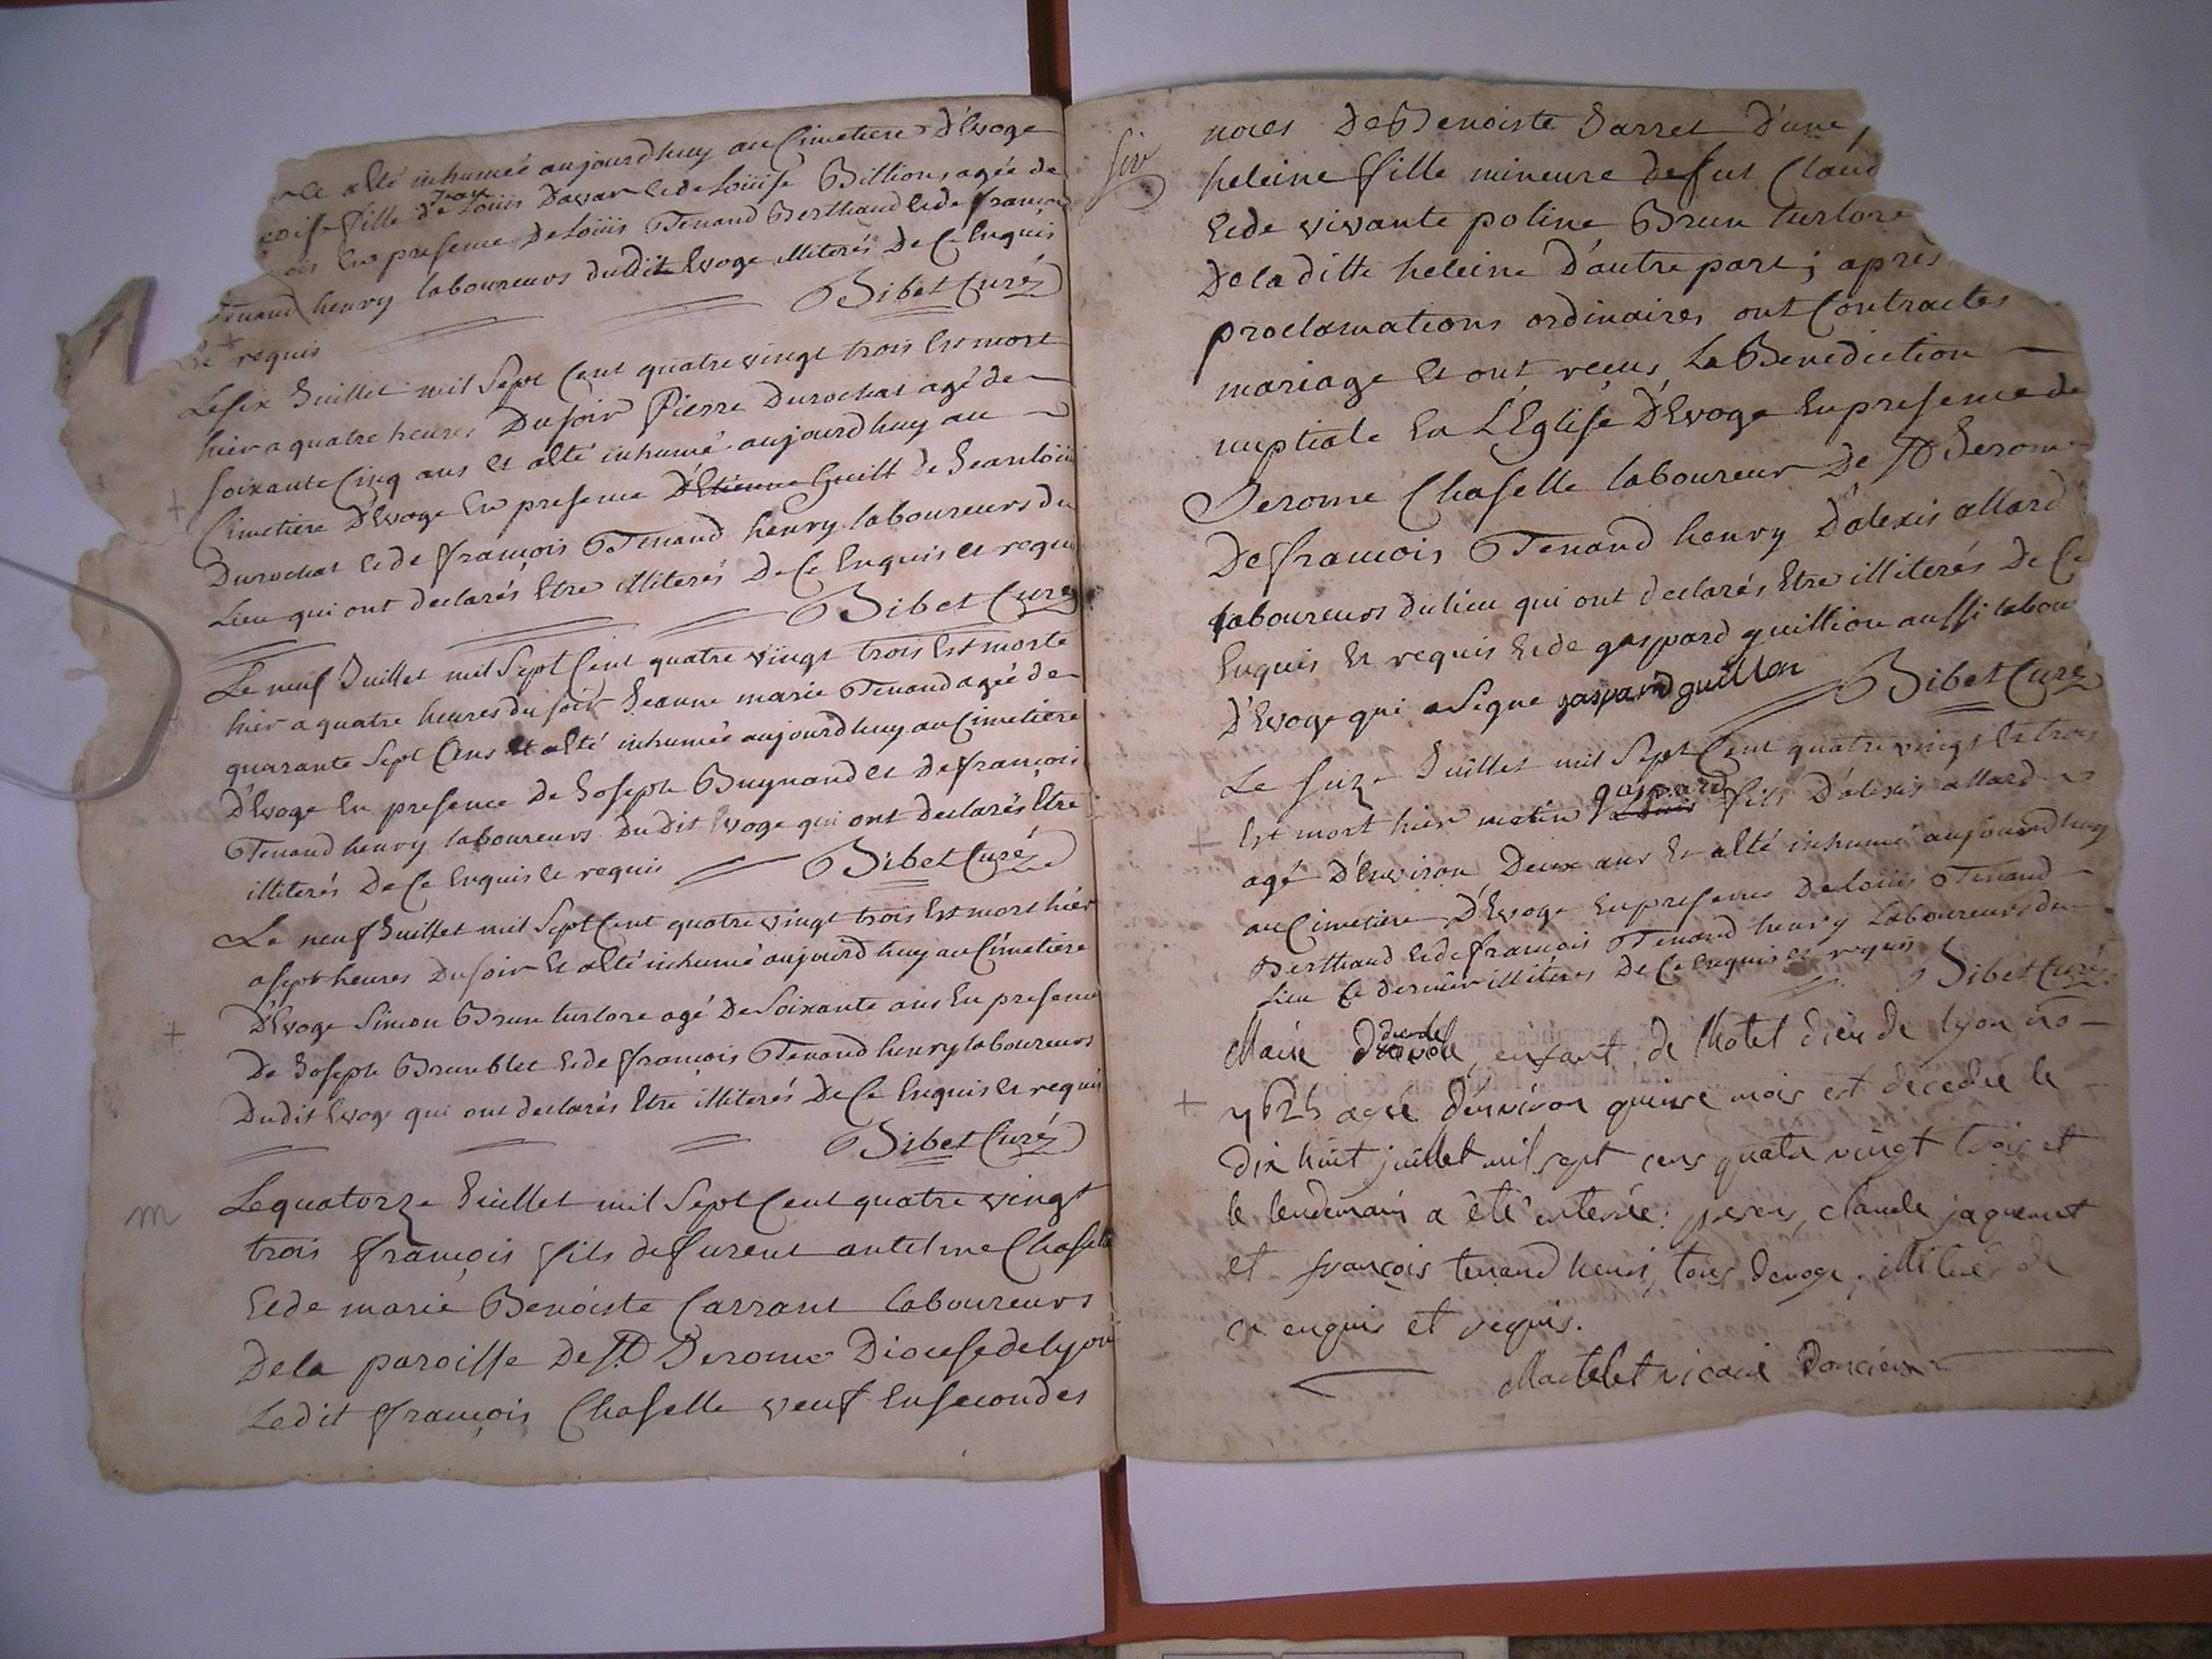 et a été inhumée aujourdhuy au Cimetiere D'Evoge
fille de Jean Loüis Davar et de Loüise Billion agée de
mois En presence De Loüis Tenand Berthaud et de françois
Tenand henry laboureurs dudit Evoge illiterés De Ce Enquis
et requis Bibet Curé
Le six Juillet mil Sept Cent quatre vingt trois Est mort
hier a quatre heures Du soir Pierre Durochat agé de
soixante Cinq ans et a été inhumé aujourdhuy au
Cimetiere D'Evoge En presence D'Etienne Guilt de Jean loüis
Durochat et de françois Tenand henry laboureurs du
Lieu qui ont declarés Etre illiterés De Ce Enquis et requis
Bibet Curé
Le neuf Juillet mil Sept Cent quatre vingt trois Est morte
hier a quatre heures du soir Jeanne marie Tenand agée de
quarante Sept Ans et a été inhumée aujourdhuy au Cimetiere
D'Evoge En presence de Joseph Buynand et De françois
Tenand henry laboureurs Du Dit Evoge qui ont declarés Etre
illiterés De Ce Enquis et requis Bibet Curé
Le neuf Juillet mil Sept Cent quatre vingt trois Est mort hier
a sept heures Du soir Et a été inhumé aujourd huy au Cimetiere
D'Evoge Simon Brun turlore agé De Soixante ans En presence
De Joseph Brun blet et de françois Tenand henry laboureurs
Du dit Evoge qui ont declarés Etre illiterés De Ce Enquis et requis
Bibet Curé
m Le quatorze Juillet mil Sept Cent quatre vingt
trois françois fils de furent antelme Chaselle
et de marie Benoiste Carrant laboureurs
De la paroisse De St Jerome Diocese de lyon
Ledit françois Chaselle veuf En secondes
noces De Benoiste Jarret D'une
heleine fille mineure de fut Claud
et de vivante poline Brun turlore
De la ditte heleine D'autre part ; après
proclamations ordinaires ont Contractés
mariage et ont reçus La Benediction
nuptiale En L'Eglise D'Evoge En presence de
Jerome Chaselle laboureur de St Jerome
De françois Tenand henry D'alexis allard
laboureurs du lieu qui ont declarés Etre illiterés De Ce
Enquis et requis et de gaspard guillion aussi labou
D'Evoge qui a Signe gaspard guillon Bibet Curé
Le seize Juillet mil Sept Cent quatre vingt et trois
Est mort hier matin gaspard fils D'alexis allard
agé D'Environ Deux ans et a été inhumé aujourdhuy
au Cimetiere D'Evoge En presence De Loüis Tenand
Berthaud et de françois Tenand henry Laboureurs du
Lieu Ce dernier illiteres De Ce enquis et requis Bibet Curé
Marie enfant de lhotel dieu de lyon no
agée d'environ quinse mois est décedée le
dix huit juillet mil sept cens quatre vingt trois et
le lendemain a été enterrée: presens, claude jaquemet
et françois tenand henri, tous d'evoge, illiterés de
ce enquis et requis.
Martelet vicaire Doncieux